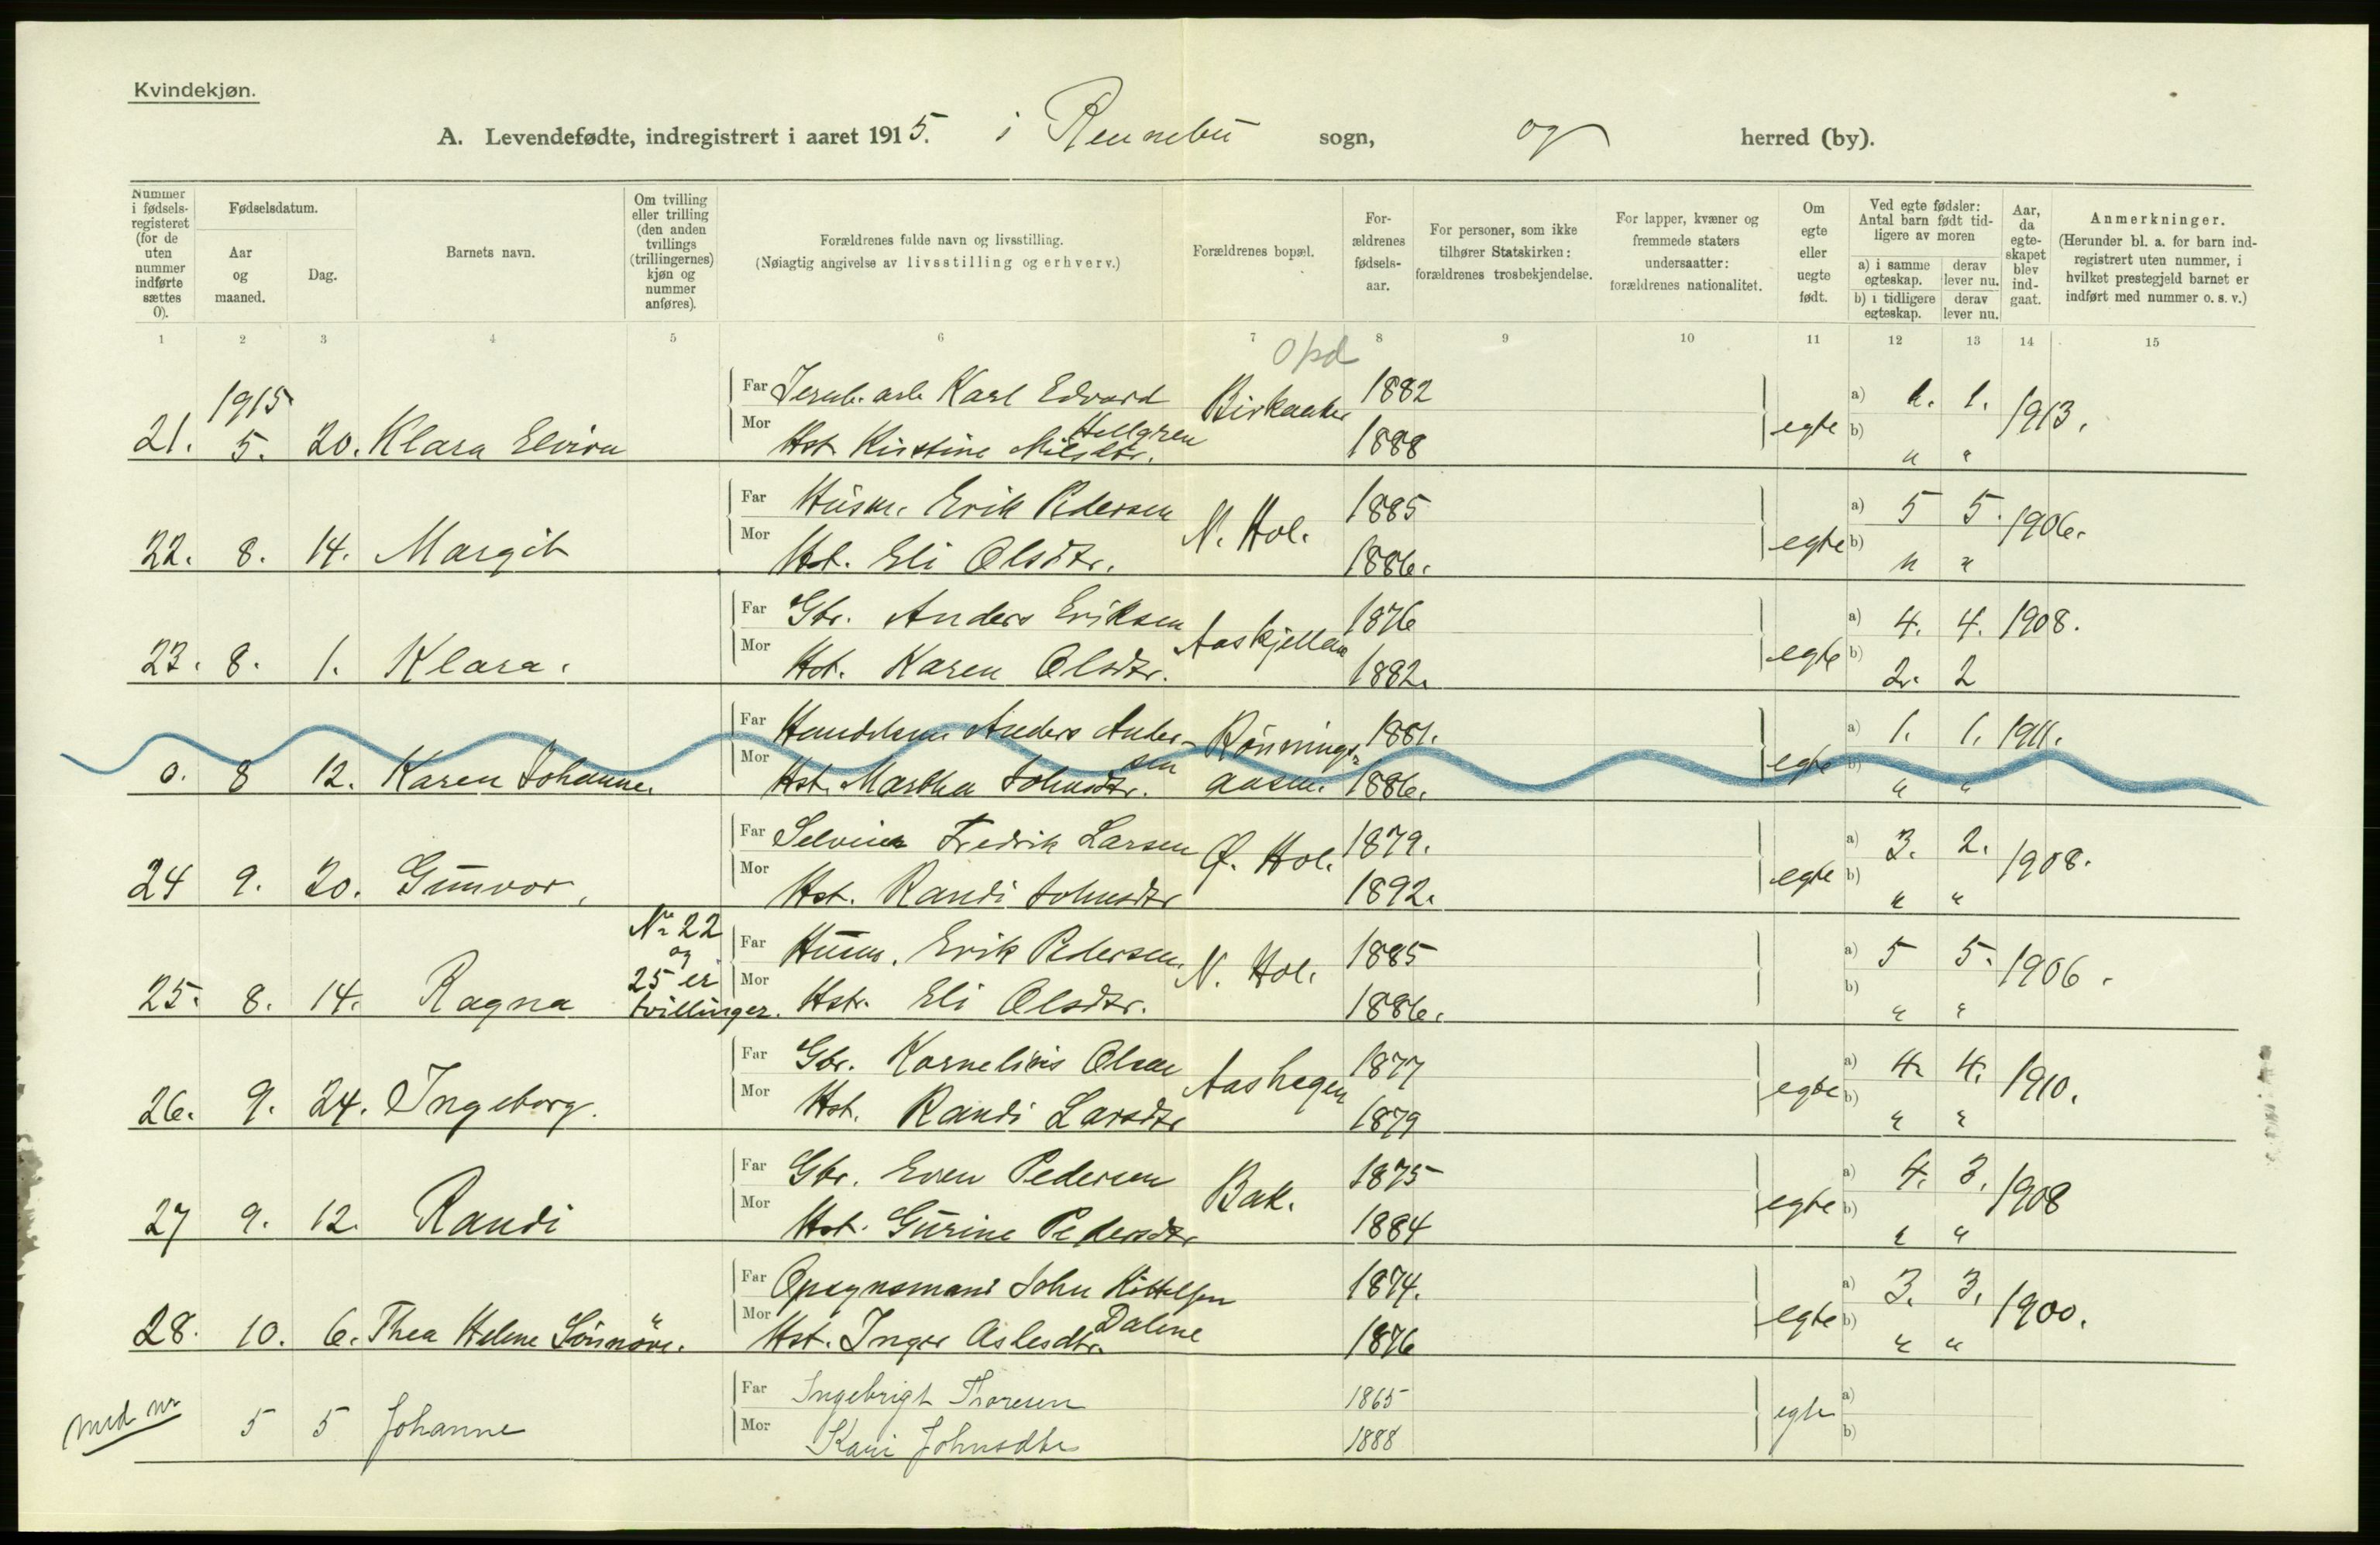 Kvindekjøn.
A. Levendefødte, indregistrert i aaret 1915. i Rennebu sogn, og herred (by).
Nummer i fødsels-registeret (for de uten nummer indførte sættes 0).
Fødselsdatum.
Aar og maaned.
Dag.
Barnets navn.
Om tvilling eller trilling (den anden tvillings (trillingernes) kjøn og nummer anføres).
Forældrenes fulde navn og livsstilling.
(Nøiagtig angivelse av livsstilling og erhverv.)
Forældrenes bopæl.
For-ældrenes fødsels-aar.
For personer, som ikke tilhører Statskirken: forældrenes trosbekjendelse.
For lapper, kvæner og fremmede staters undersaatter: forældrenes nationalitet.
Om egte eller uegte født.
Ved egte fødsler: Antal barn født tid-ligere av moren
a) i samme egteskap.
derav lever nu.
b) i tidligere egteskap.
derav lever nu.
Aar, da egte-skapet blev ind-gaat.
Anmerkninger.
(Herunder bl. a. for barn ind-registrert uten nummer, i hvilket prestegjeld barnet er indført med nummer o. s. v.)
1 2 3 4 5 6 7 8 9 10 11 12 13 14 15
Opd
1915
Far Jernb. arb. Karl Edvard Birkaaker 1882 a) 1. 1. 1913.
Hellgren
21. 5. 20. Klara Elvira Mor Hst. Kirstine Nilsdtr. 1888 egte b) " "
Far Husm. Erik Pedersen N. Hol. 1885 a) 5 5. 1906.
22. 8. 14. Margit Mor Hst. Eli Olsdtr. 1886. egte b) " "
Far Gbr. Anders Eriksen Aaskjellen 1876 a) 4. 4. 1908.
23. 8. 1. Klara. Mor Hst. Karen Olsdtr. 1882. egte b) 2. 2
Far Handelsm. Anders Anders- Rönnings- 1881. a) 1. 1. 1911.
sen
0. 8 12. Karen Johanne. Mor Hst. Martha Johnsdtr. aasen. 1886. egte b) " "
Far Selveier Fredrik Larsen Ø. Hol. 1879. a) 3. 2. 1908.
24 9. 20. Gunvor. Mor Hst. Randi Johnsdtr 1892. egte b) " "
Nr 22
og
25 er
tvillinger.
Far Husm. Erik Pedersen. N. Hol. 1885 a) 5 5. 1906.
25. 8. 14. Ragna Mor Hstr. Eli Olsdtr. 1886. b) " "
Far Gbr. Kornelius Olsen Aashagen 1877 a) 4. 4. 1910.
26. 9. 24. Ingeborg. Mor Hst. Randi Larsdtr 1879 egte b) " "
Far Gbr. Even Pedersen Bak. 1875 a) 4. 3. 1908
27 9. 12. Randi Mor Hst. Gurine Pedersdtr 1884 egte b) " "
Far Opsynsmand John Kittelsen 1874. a) 3. 3. 1900.
Dalene
28. 10. 6. Thea Helene Sünnöve. Mor Hst. Inger Aslesdtr. 1876 egte b) " "
Far Ingebrigt Thoresen 1865 a)
med nr 5 5 Johanne Mor Kari Johnsdtr 1888 egte b)